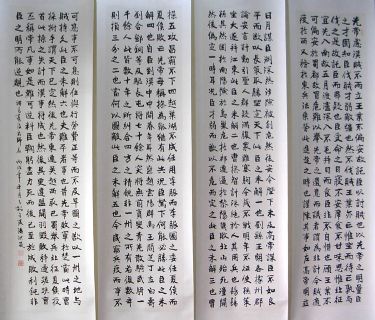 先帝慮漢賊不兩立王業不偏安故託臣以討賊也以先帝之明量臣
之才固知臣伐賊才弱敵強也然不伐賊王業亦亡惟坐而待亡孰與
伐之是故託臣而弗疑也臣受命之日寢不安席食不甘味思惟北征
宜先入南故五月渡瀘深入不毛并日而食臣非不自惜也顧王業不
可偏安於蜀都故冒危難以奉先帝之遺意也而議者謂為非計今賊適
疲於西又務於東兵法乘勞此進趨之時也謹陳其事如左高帝明並
日月謀臣淵深然涉險被創危然後安今陛下未及高帝謀臣不如良平
而欲以長策取勝坐定天下此臣之未解一也劉繇王朗各據州郡
論安言計動引聖人群疑滿腹眾難塞胸今歲不戰明年不征使孫策
坐大遂并江東此臣之未解二也曹操智計殊絕於人其用兵也髣髴孫吳
然困於南陽險於烏巢危於祁連偪於黎陽幾敗北山殆死潼關
然後偽定一時爾況臣才弱而欲以不危而定之此臣之未解三也曹
操五攻昌霸不下四越巢湖不成任用李服而李服圖之委任夏侯而
夏侯敗亡先帝每稱操為能猶有此失況臣駑下何能必勝此臣之未
解四也自臣到漢中中間朞年耳然喪趙雲陽群馬玉閻芝丁立白壽
劉郃鄧銅等及曲長屯將七十餘人突將無前賨叟青羌散騎武騎一
千餘人此皆數十年之內所糾合四方之精銳非一州之所有若復數年
則損三分之二也當何以圖敵此臣之未解五也今民窮兵疲而事不
可息事不可息則住與行勞費正等而不及早圖之欲以一州之地與
賊持久此臣之未解六也夫難平者事也昔先帝敗軍於楚當此時曹
操拊手謂天下已定然後先帝東連吳越西取巴蜀舉兵北征夏侯授
首此操之失計而漢事將成也然後吳更違盟關羽毀敗秭歸蹉跌曹
丕稱帝凡事如是難可逆料臣鞠躬盡力死而後已至於成敗利鈍非
臣之明所能逆覩也